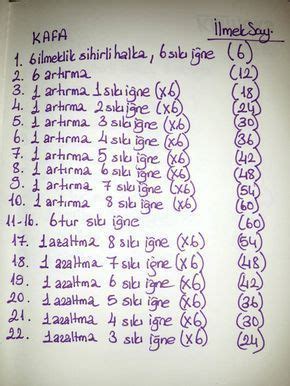 KAFA İlmek Say.
1. 6 ilmeklik sihirli halka, 6 sık iğne (6)
2. 6 artırma (12)
3. 1 artırma 1 sık iğne (x6) (18)
4. 1 artırma 2 sık iğne (x6) (24)
5. 1 artırma 3 sık iğne (x6) (30)
6. 1 artırma 4 sık iğne (x6) (36)
7. 1 artırma 5 sık iğne (x6) (42)
8. 1 artırma 6 sık iğne (x6) (48)
9. 1 artırma 7 sık iğne (x6) (54)
10. 1 artırma 8 sık iğne (x6) (60)
11-16. 6 tur sık iğne (60)
17. 1 azaltma 8 sık iğne (x6) (54)
18. 1 azaltma 7 sık iğne (x6) (48)
19. 1 azaltma 6 sık iğne (x6) (42)
20. 1 azaltma 5 sık iğne (x6) (36)
21. 1 azaltma 4 sık iğne (x6) (30)
22. 1 azaltma 3 sık iğne (x6) (24)